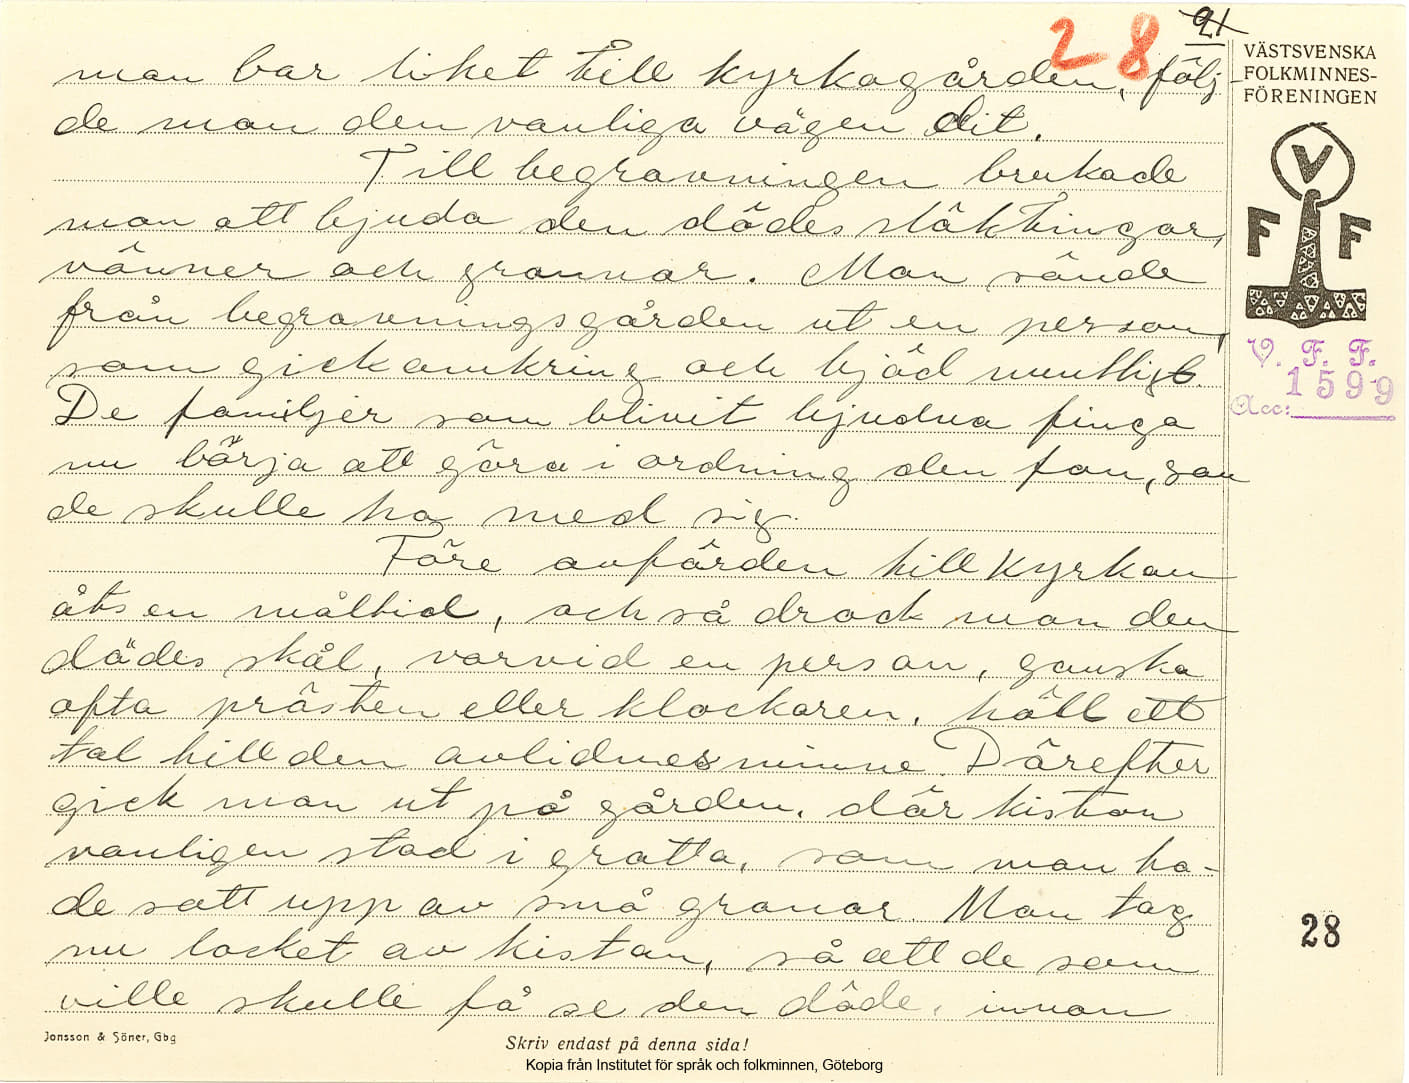 28 21
VÄSTSVENSKA
FOLKMINNES-
FÖRENINGEN
man bar liket till kyrkogården, följ-
de man den vanliga vägen dit.
Till begravningen brukade
man att bjuda den dödes släktingar,
vänner och grannar. Man sände
från begravningsgården ut en person,
som gick omkring och bjöd muntligt.
De familjer som blivit bjudna finga
nu börja att göra i ordning den fon, som
de skulle ha med sig.
Före avfärden till kyrkan
åts en måltid, och så drack man den
dödes skål, varvid en person, ganska
ofta prästen eller klockaren, höll ett
tal till den avlidnes minne. Därefter
gick man ut på gården, där kistan
vanligen stod i gratta, som man ha-
de satt upp av små granar. Man tog
nu locket av kistan, så att de som
ville skulle få se den döde, innan
V
F F
V. F. F.
Acc: 1599
28
Jonsson & Söner, Gbg
Skriv endast på denna sida!
Kopia från Institutet för språk och folkminnen, Göteborg